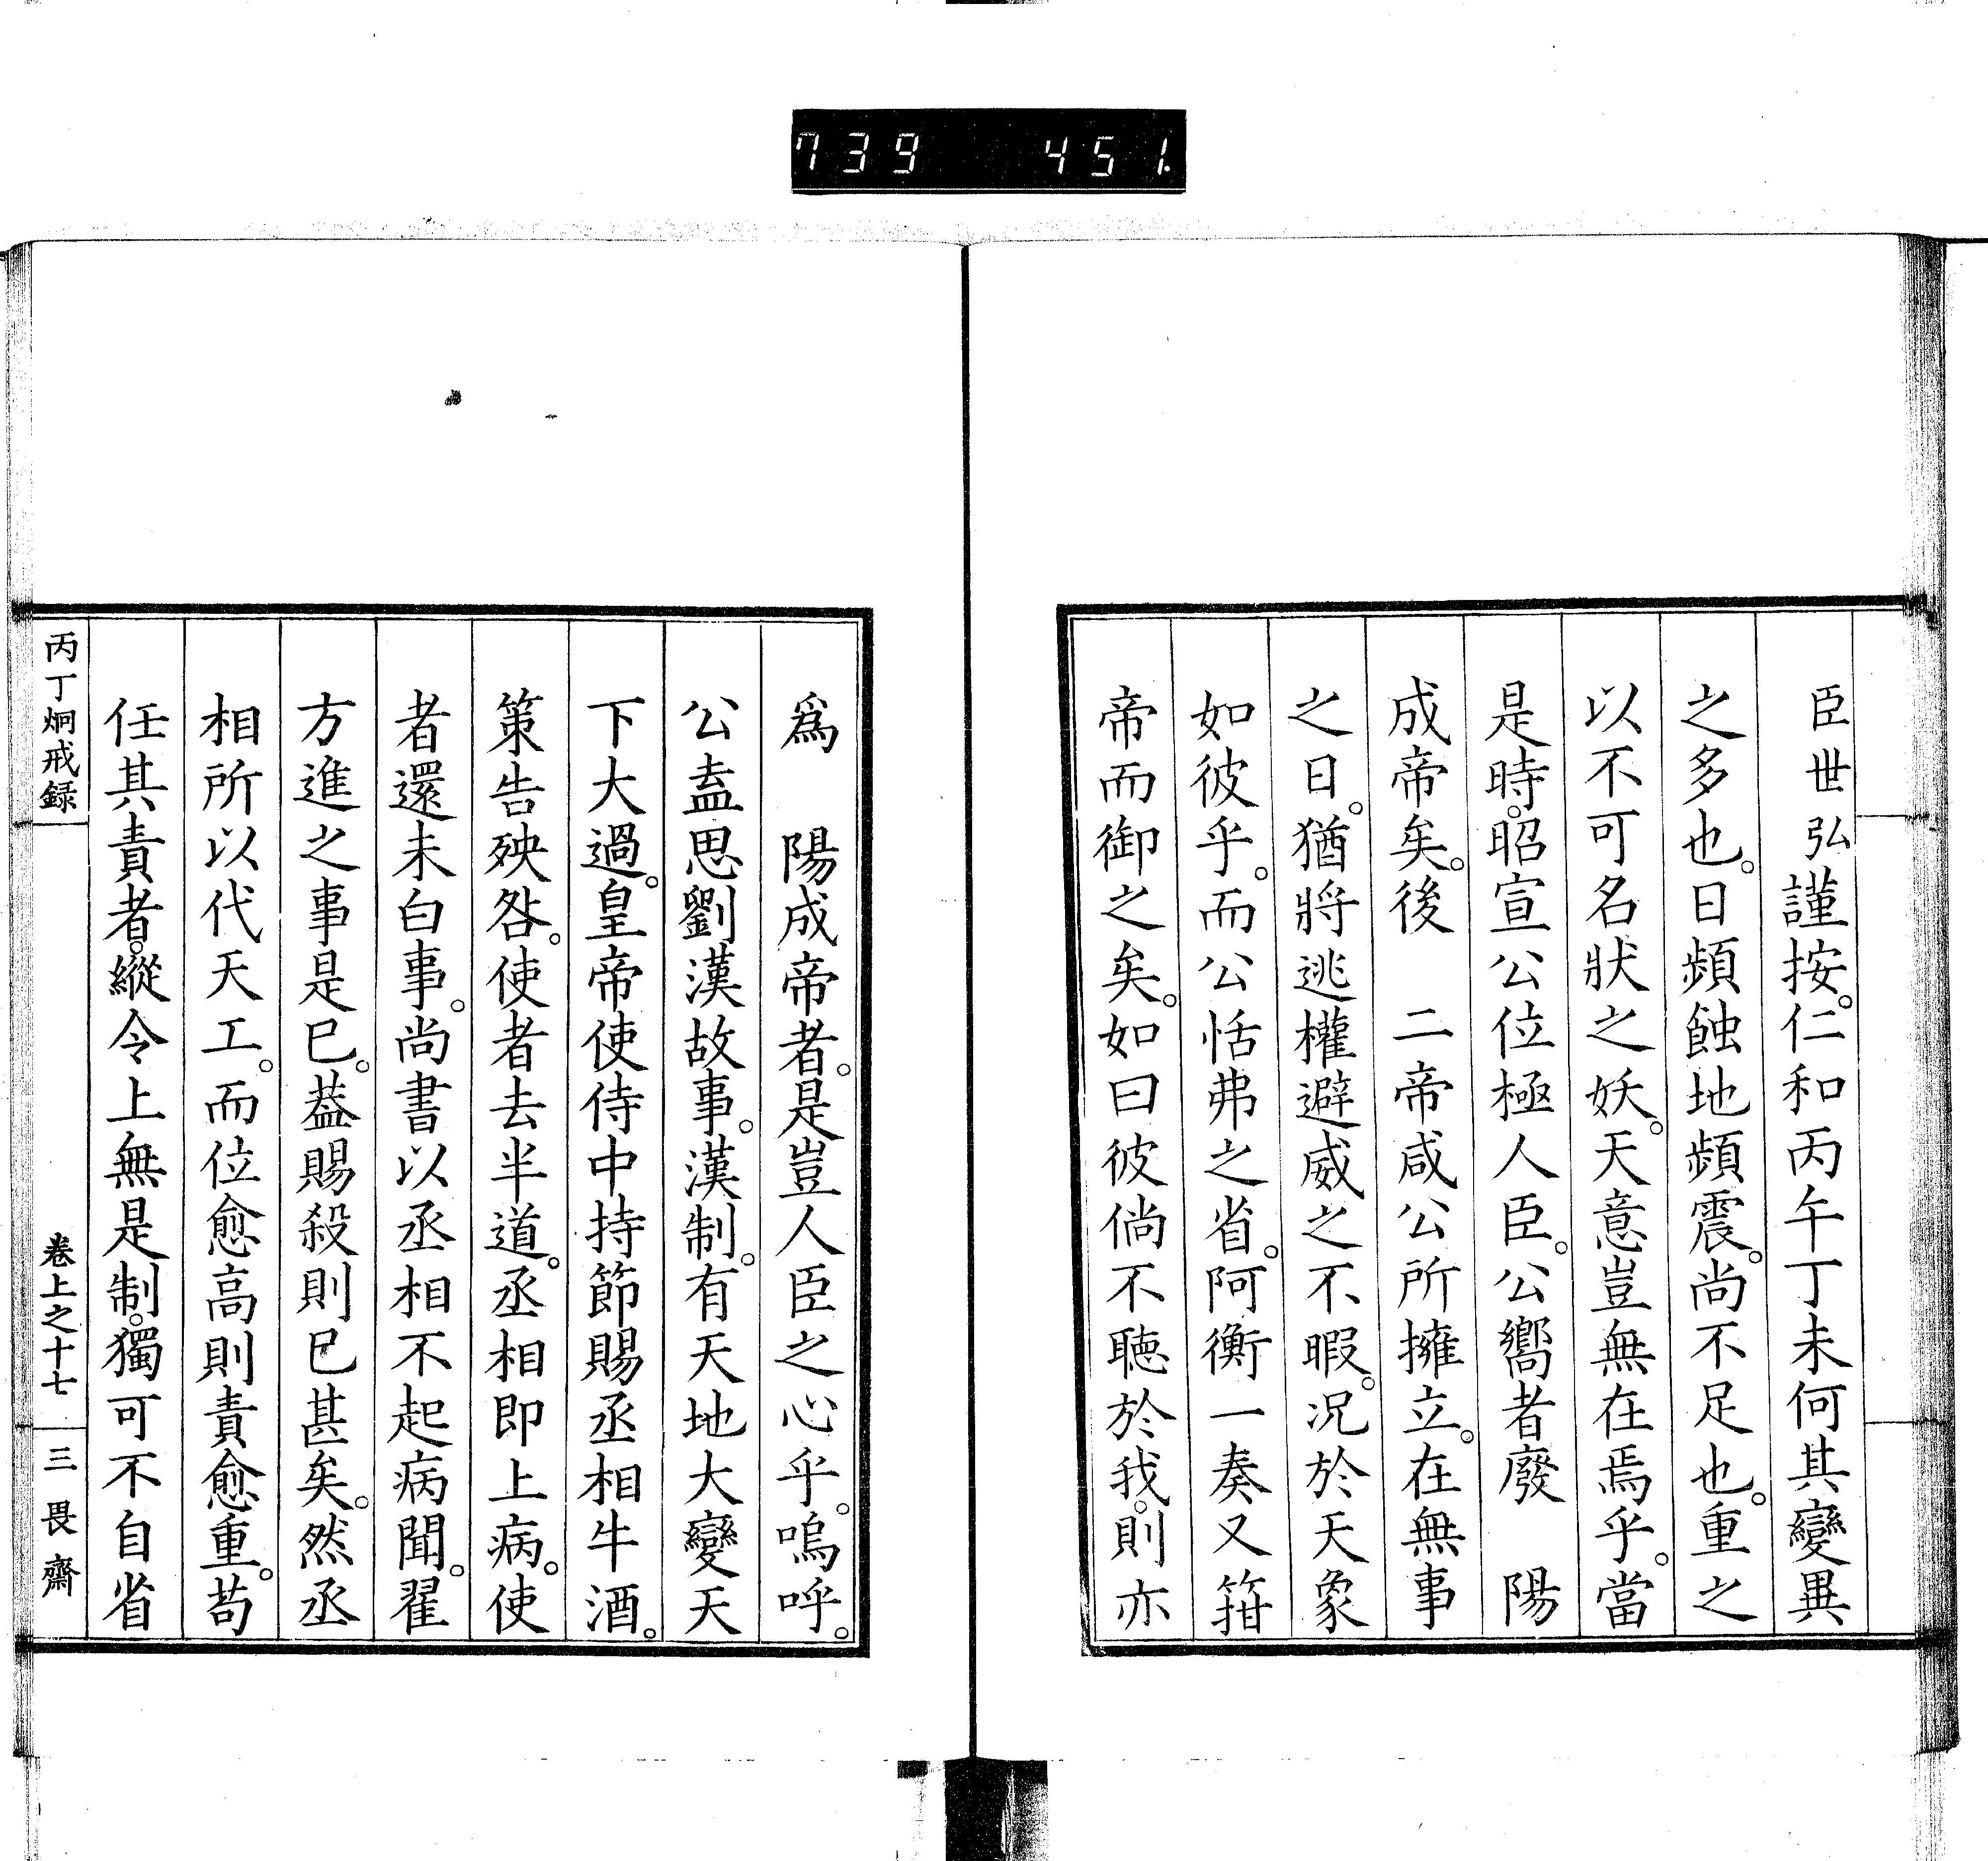 739 451.
臣世弘謹按。仁和丙午丁未何其變異
之多也。日頻蝕地頻震。尚不足也。重之
以不可名狀之妖。天意豈無在焉乎。當
是時。昭宣公位極人臣。公嚮者廢　陽
成帝矣。後　二帝咸公所擁立。在無事
之日。猶將逃權避威之不暇。況於天象
如彼乎。而公恬弗之省。阿衡一奏又箝
帝而御之矣。如曰彼倘不聽於我。則亦
爲　陽成帝者。是豈人臣之心乎。嗚呼。
公盍思劉漢故事。漢制。有天地大變天
下大過。皇帝使侍中持節賜丞相牛酒。
策告殃咎。使者去半道。丞相即上病。使
者還未白事。尚書以丞相不起病聞。翟
方進之事是已。葢賜殺則已甚矣。然丞
相所以代天工。而位愈高則責愈重。苟
任其責者。縱令上無是制。獨可不自省
丙丁炯戒録
卷上之十七
三畏齋